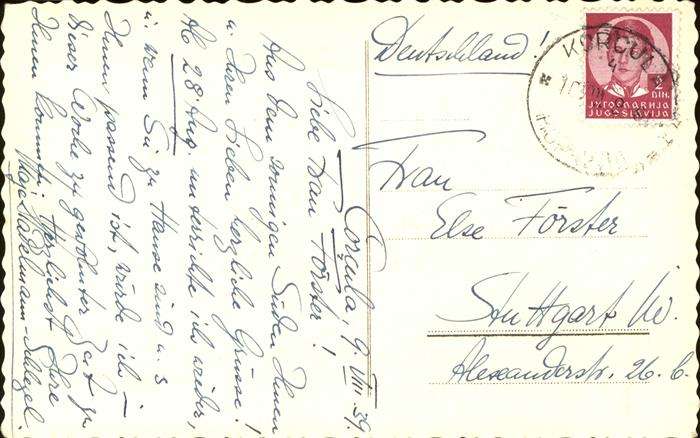 Corcula, 9. VIII. 39.
Liebe Frau Förster!
Aus dem sonnigen Süden Ihnen
u. Ihren Lieben herzliche Grüsse!
Ab 28. Aug. unterrichte ich wieder,
u. wenn Sie zu Hause sind u. s
Ihnen passend ist, würde ich –
dieser Woche zu gewohnter Zeit zu
Ihnen kommen. Herzlichst Ihre
Deutschland!
KORCULA
2
DIN.
ЈУГОСЛАВИЈА
JUGOSLAVIJA
Frau
Else Förster
Stuttgart W.
Alexanderstr. 26. b.